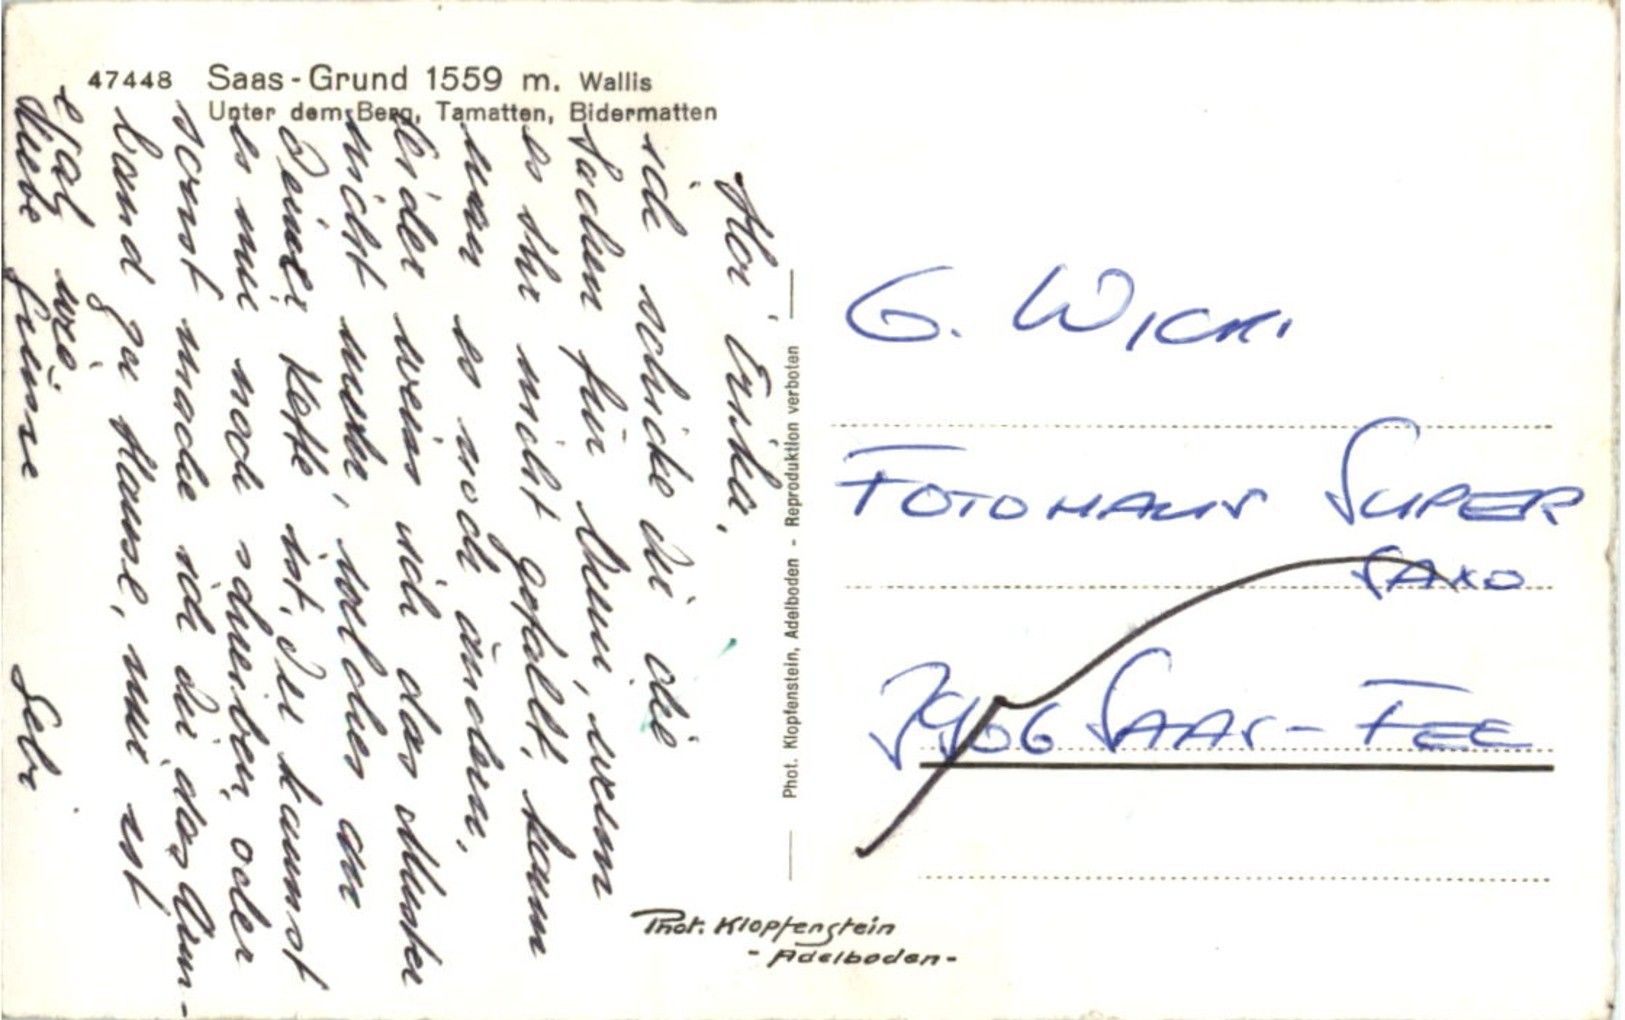 47448 Saas-Grund 1559 m. Wallis
Unter dem Berg, Tamatten, Bidermatten
Hoi Erika,
ich schicke dir die
Sachen für Leuu, wenn
es ihr nicht gefällt, kann
man es noch ändern.
Leider weiss ich das Muster
nicht mehr, solches an
Deiner Kette ist. Du kannst
es mir noch schreiben, oder
sonst mache ich dir das Arm-
band zu Hause, mir ist
egal wie.
Liebe Grüsse Gebi
Phot. Klopfenstein, Adelboden - Reproduktion verboten
G. Wicki
Fotohaus Super
Saxo
3906 Saas-Fee
Phot. Klopfenstein
- Adelboden -